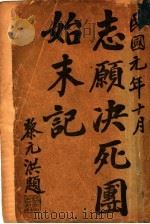 民國元年十月
志願決死團
始末記
黎元洪題